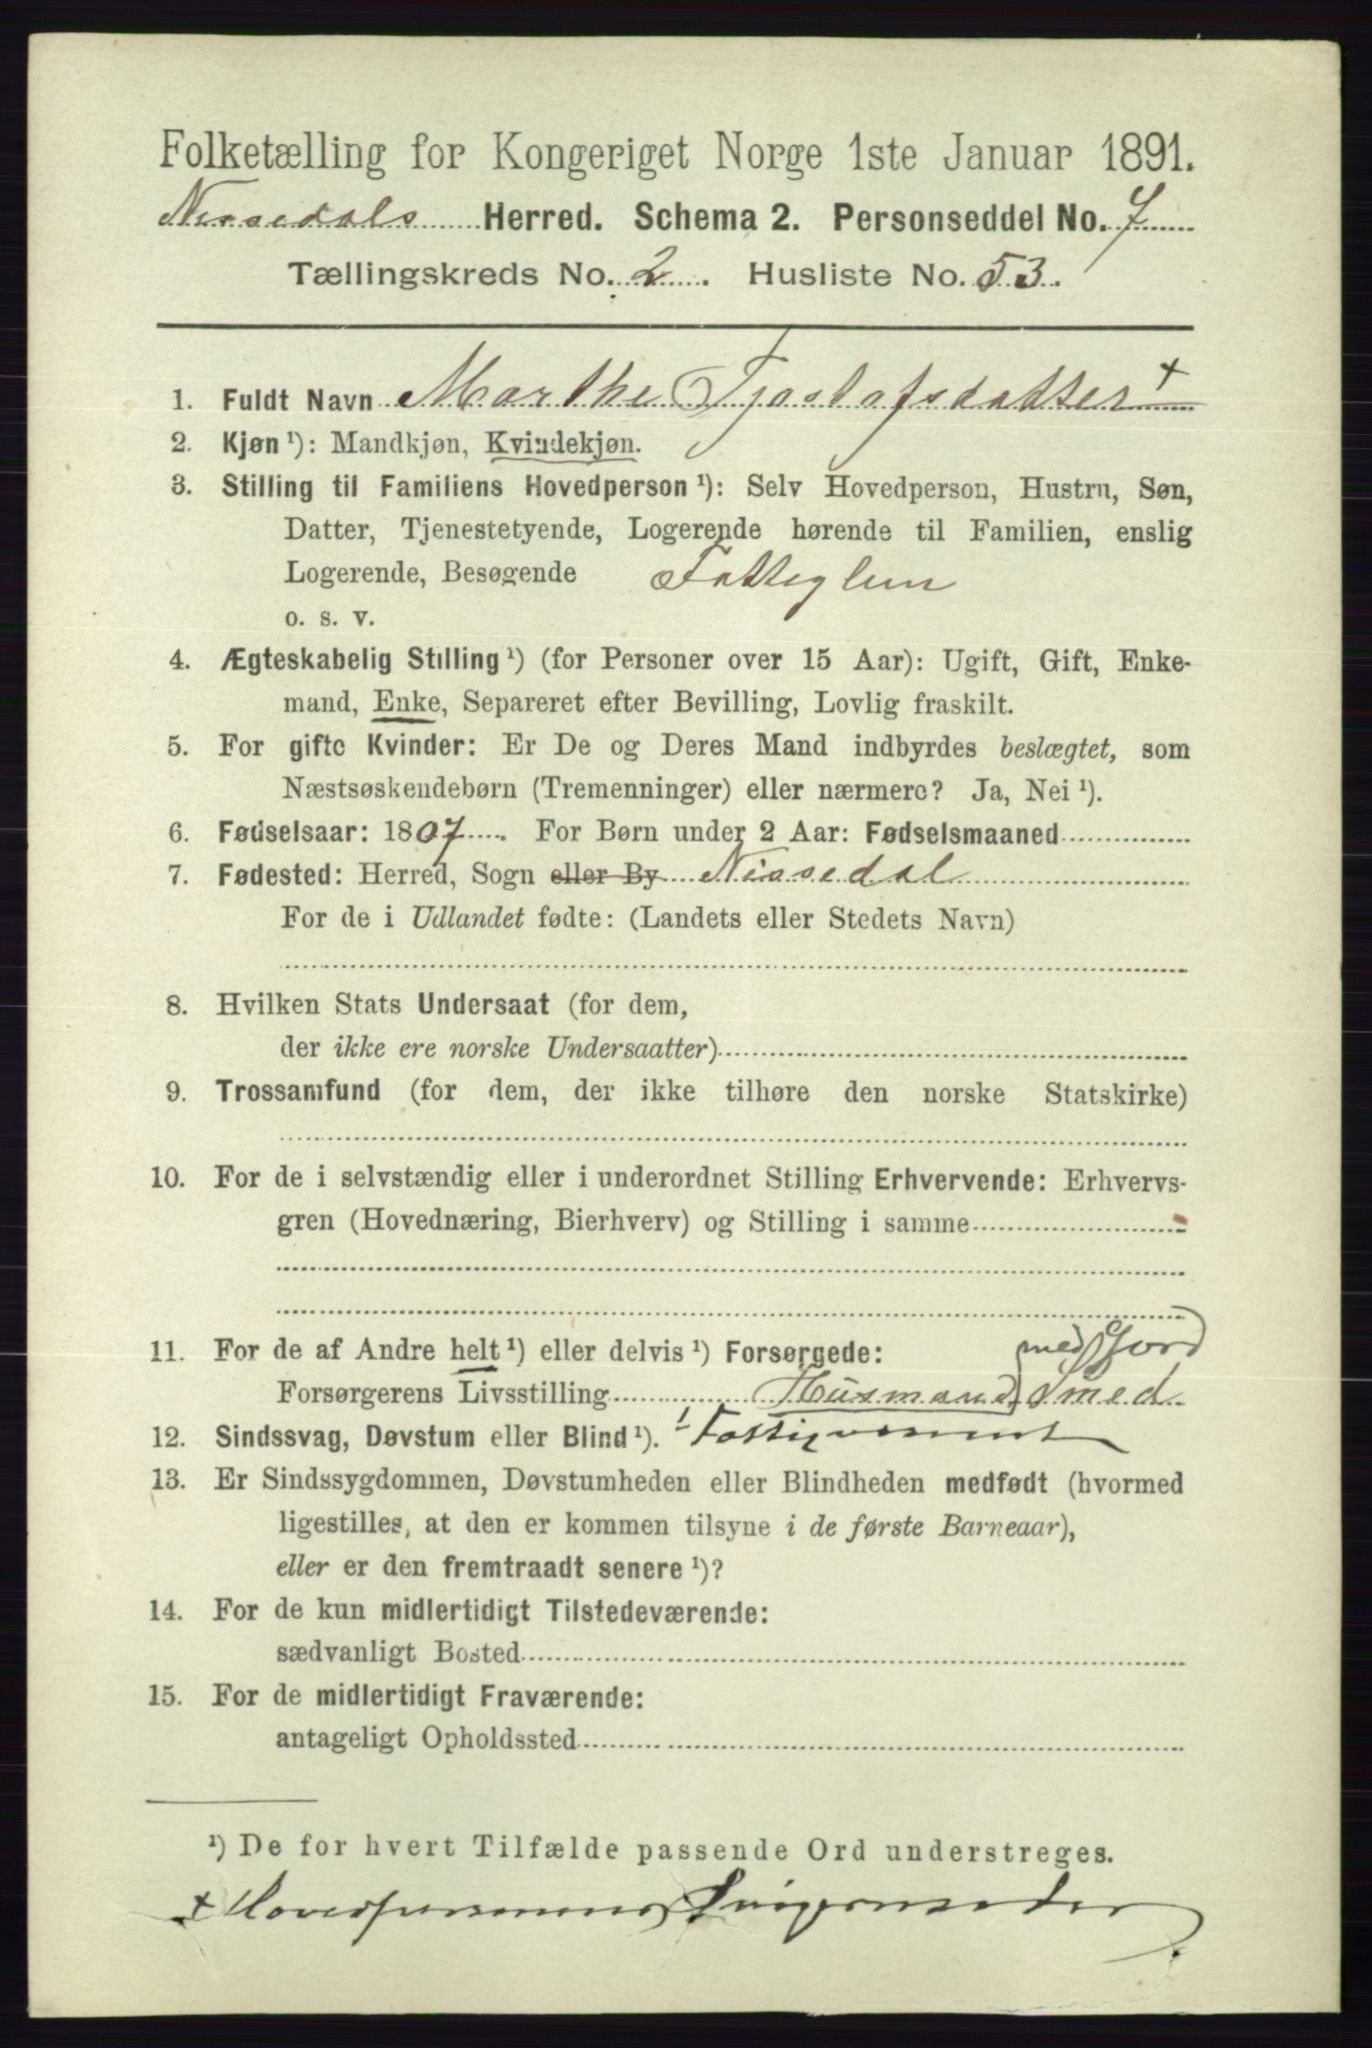 Folketælling for Kongeriget Norge 1ste Januar 1891.
Nissedals Herred. Schema 2. Personseddel No. 7
Tællingskreds No. 2. Husliste No. 53.
1. Fuldt Navn Marthe Tjostofsdatter +
2. Kjøn ¹): Mandkjøn, Kvindekjøn.
3. Stilling til Familiens Hovedperson ¹): Selv Hovedperson, Hustru, Søn,
Datter, Tjenestetyende, Logerende hørende til Familien, enslig
Logerende, Besøgende Fattiglem
o. s. v.
4. Ægteskabelig Stilling ¹) (for Personer over 15 Aar): Ugift, Gift, Enke-
mand, Enke, Separeret efter Bevilling, Lovlig fraskilt.
5. For gifte Kvinder: Er De og Deres Mand indbyrdes beslægtet, som
Næstsøskendebørn (Tremenninger) eller nærmere? Ja, Nei ¹).
6. Fødselsaar: 1807. For Børn under 2 Aar: Fødselsmaaned
7. Fødested: Herred, Sogn eller By Nissedal
For de i Udlandet fødte: (Landets eller Stedets Navn)
8. Hvilken Stats Undersaat (for dem,
der ikke ere norske Undersaatter)
9. Trossamfund (for dem, der ikke tilhøre den norske Statskirke)
10. For de i selvstændig eller i underordnet Stilling Erhvervende: Erhvervs-
gren (Hovednæring, Bierhverv) og Stilling i samme
11. For de af Andre helt ¹) eller delvis ¹) Forsørgede: med Jord
Forsørgerens Livsstilling Husmand, Smed
12. Sindssvag, Døvstum eller Blind ¹). Fattigvæsenet
13. Er Sindssygdommen, Døvstumheden eller Blindheden medfødt (hvormed
ligestilles, at den er kommen tilsyne i de første Barneaar),
eller er den fremtraadt senere ¹)?
14. For de kun midlertidigt Tilstedeværende:
sædvanligt Bosted
15. For de midlertidigt Fraværende:
antageligt Opholdssted
¹) De for hvert Tilfælde passende Ord understreges.
+ Hovedpersonens Svigermoder